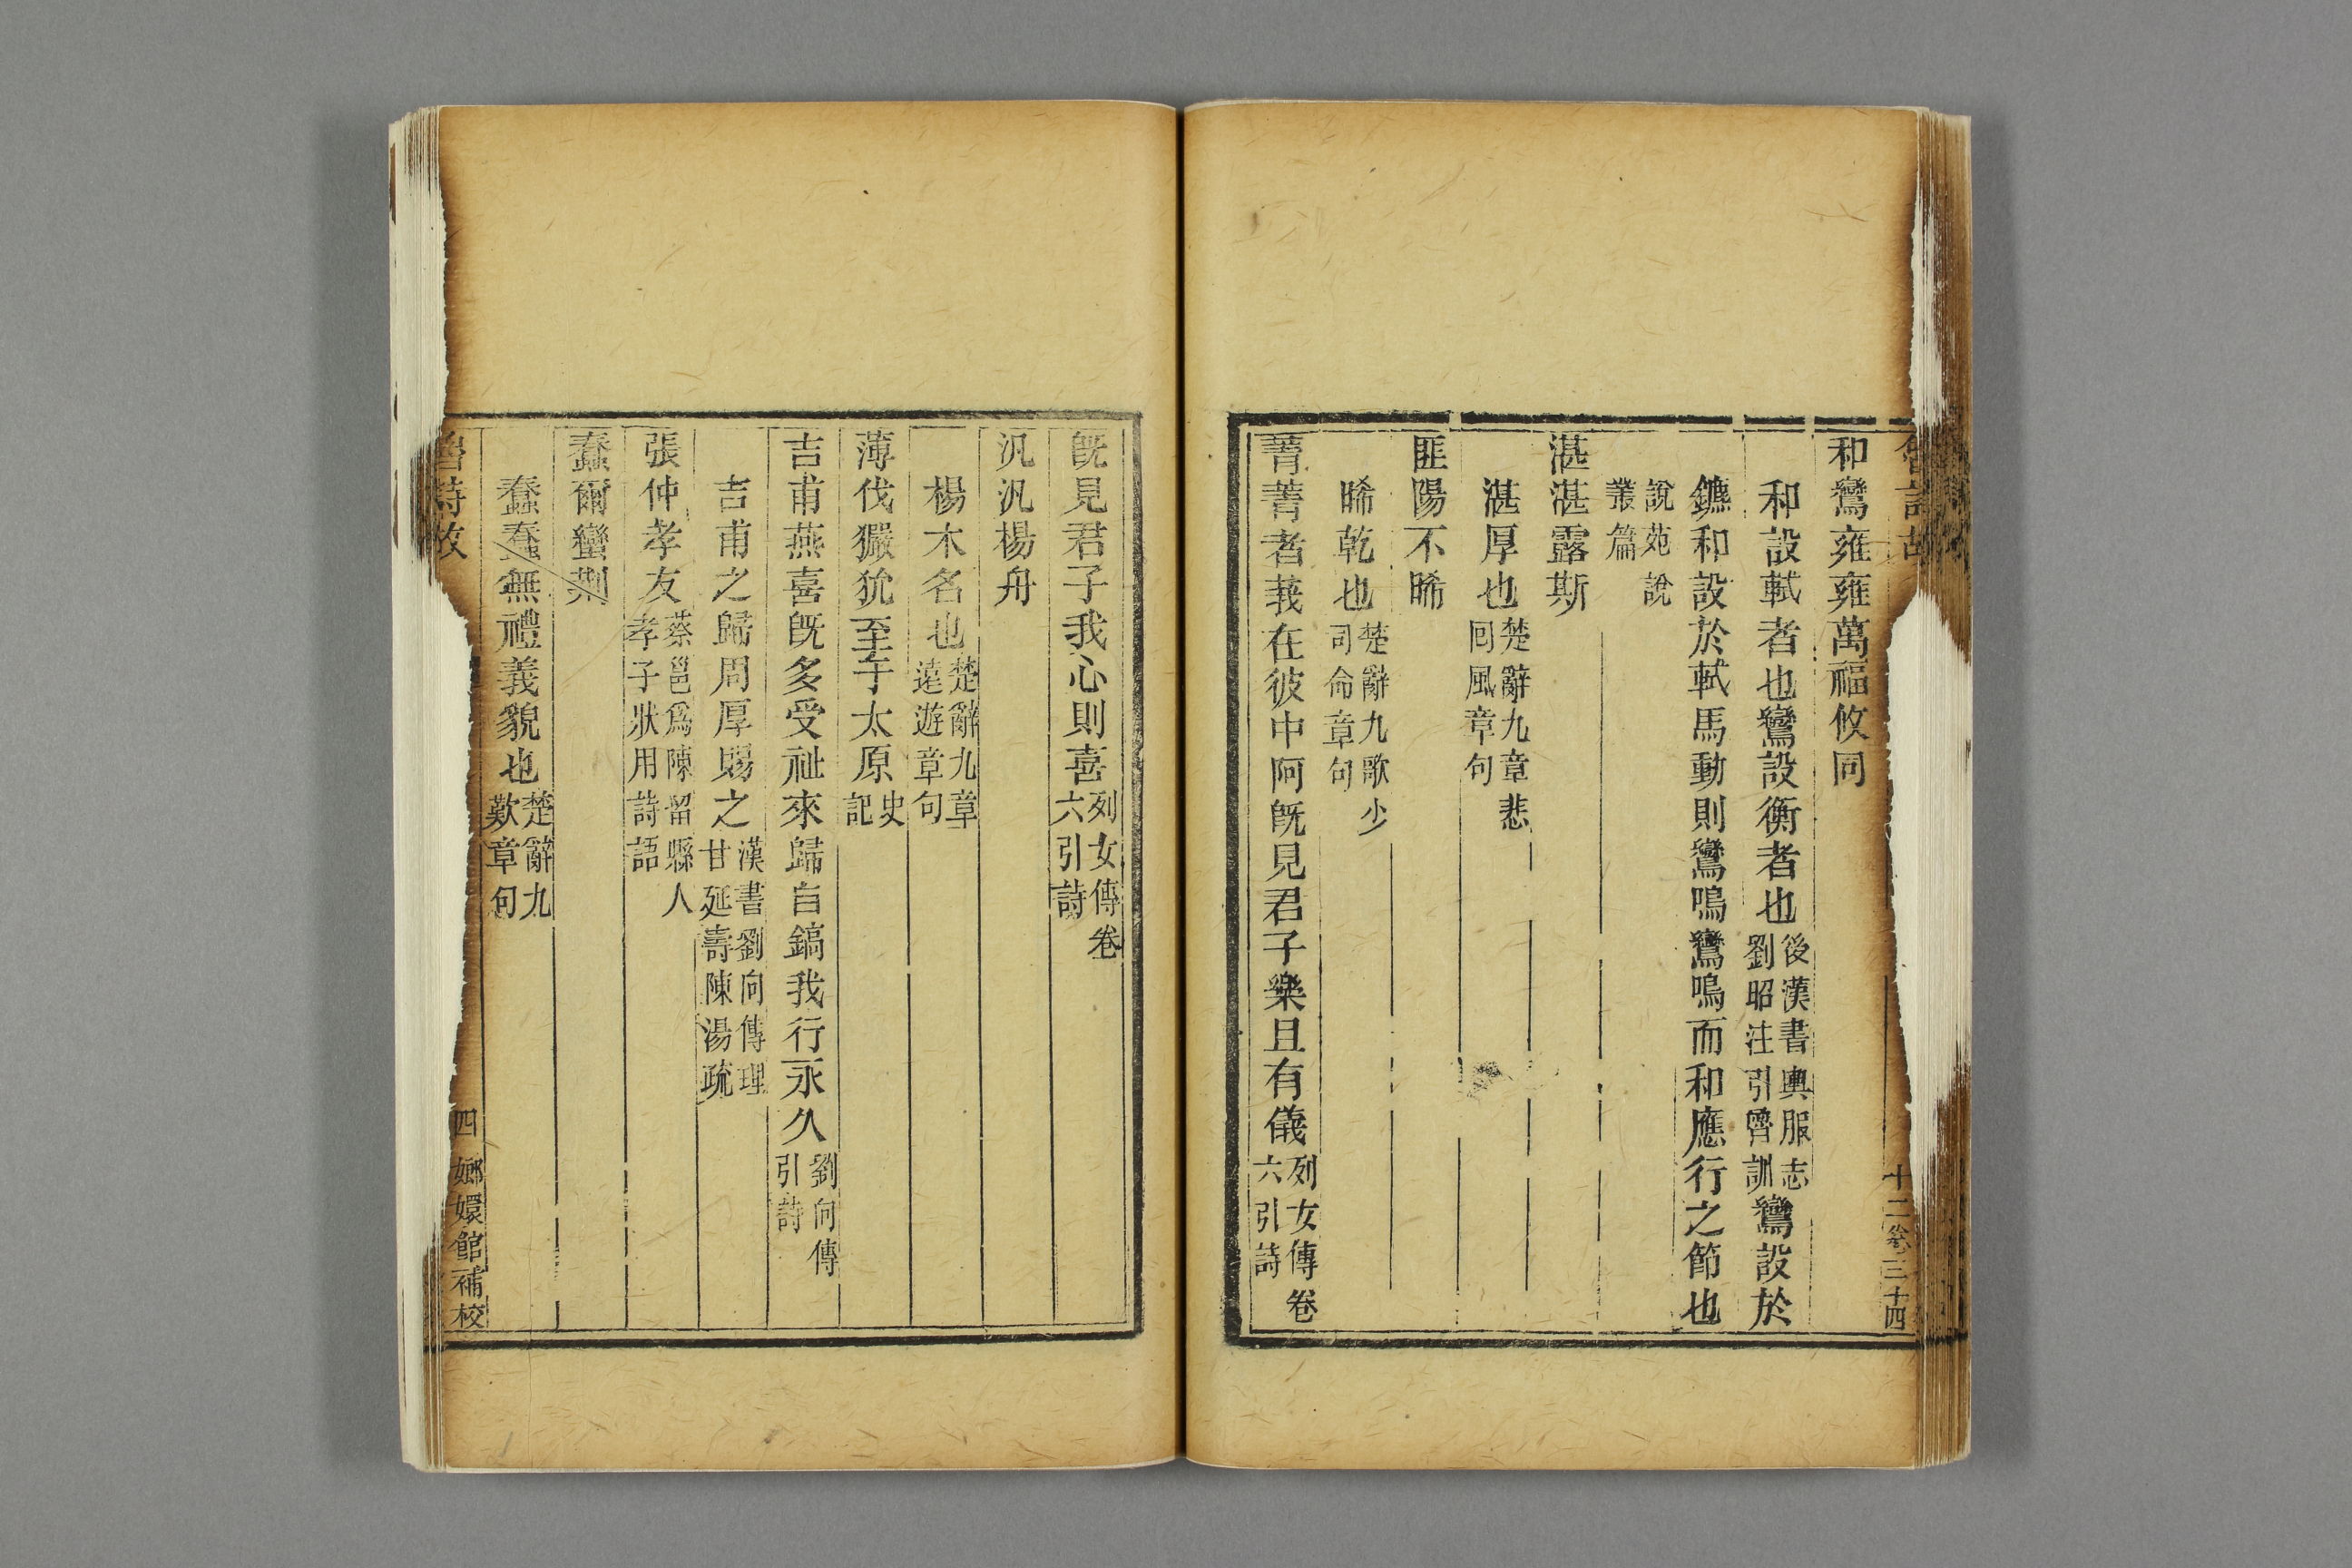 和鸞雍雍萬福攸同
和設軾者也鸞設衡者也後漢書輿服志劉昭注引魯訓鸞設於
鑣和設於軾馬動則鸞鳴鸞鳴而和應行之節也
說苑說叢篇
湛湛露斯
湛厚也楚辭九章悲回風章句
匪陽不晞
晞乾也楚辭九歌少司命章句
菁菁者莪在彼中阿旣見君子樂且有儀列女傳卷六引詩
十二卷三十四
旣見君子我心則喜列女傳卷六引詩
汎汎楊舟
楊木名也楚辭九章遠遊章句
薄伐玁狁至于太原史記
吉甫燕喜旣多受祉來歸自鎬我行永久劉向傳引詩
吉甫之歸周厚賜之漢書劉向傳理甘延壽陳湯疏
張仲孝友蔡邕爲陳留縣人孝子狀用詩語
蠢爾蠻荆
蠢蠢無禮義貌也楚辭九歎章句
魯詩故
四
嫏嬛館補校